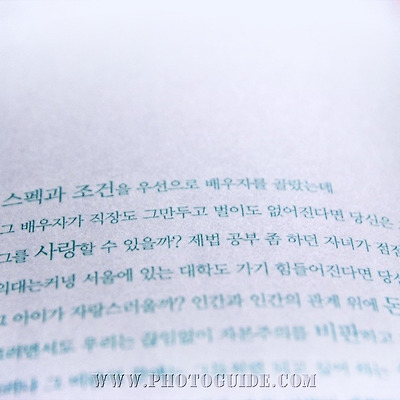 스펙과 조건을 우선으로 배우자를 골랐는데
그 배우자가 직장도 그만두고 벌이도 없어진다면 당신은
그를 사랑할 수 있을까? 제법 공부 좀 하던 자녀가 점점
의대는커녕 서울에 있는 대학도 가기 힘들어진다면 당신
그 아이가 자랑스러울까? 인간과 인간의 관계 위에 돈
그러면서도 우리는 끊임없이 자본주의를 비판하고
WWW.PHOTOGUIDE.COM